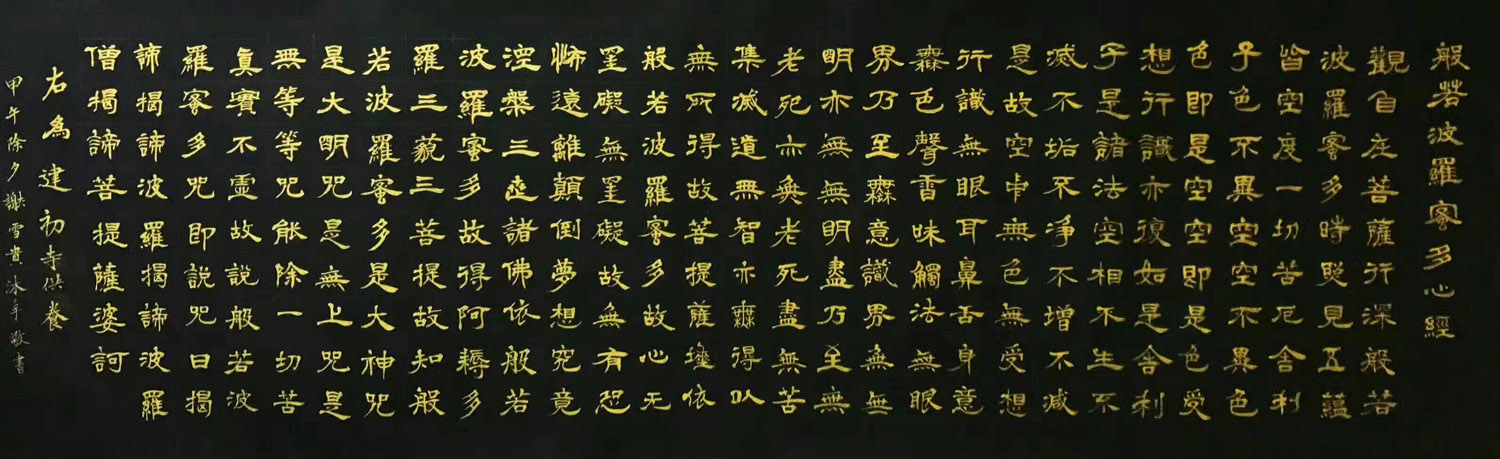 般若波羅蜜多心經
觀自在菩薩行深般若
波羅蜜多時照見五蘊
皆空度一切苦厄舍利
子色不異空空不異色
色即是空空即是色受
想行識亦復如是舍利
子是諸法空相不生不
滅不垢不淨不增不減
是故空中無色無受想
行識無眼耳鼻舌身意
無色聲香味觸法無眼
界乃至無意識界無無
明亦無無明盡乃至無
老死亦無老死盡無苦
集滅道無智亦無得以
無所得故菩提薩埵依
般若波羅蜜多故心无
罣礙無罣礙故無有恐
怖遠離顛倒夢想究竟
涅槃三世諸佛依般若
波羅蜜多故得阿耨多
羅三藐三菩提故知般
若波羅蜜多是大神咒
是大明咒是無上咒是
無等等咒能除一切苦
真實不虛故說般若波
羅蜜多咒即說咒曰揭
諦揭諦波羅揭諦波羅
僧揭諦菩提薩婆訶
右為建初寺供養
甲午除夕謝雪貴沐手敬書